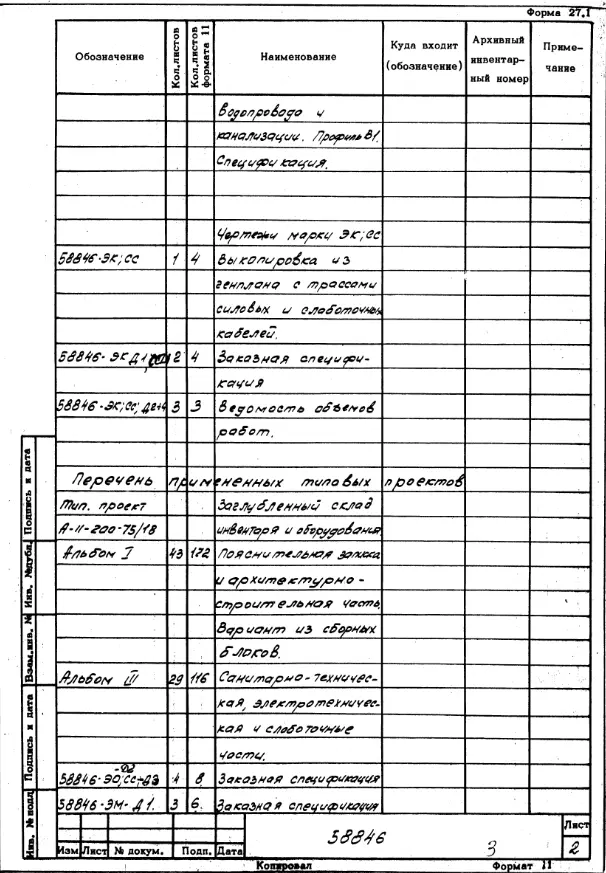 Форма 27.1
Обозначение Кол.листов Кол.листов формата 11 Наименование Куда входит (обозначение) Архивный инвентар- ный номер Приме- чание
водопровода и
канализации. Профиль В1.
Спецификация.
Чертежи марки ЭК;СС
58846-ЭК;СС 1 4 Выкопировка из
генплана с трассами
силовых и слаботочных
кабелей.
58846-ЭКД1 2 4 Заказная специфи-
кация
58846-ЭК;СС; Д2÷4 3 3 Ведомость объемов
работ.
Перечень примененных типовых проектов
Тип. проект Заглубленный склад
А-II-200-75/78 инвентаря и оборудования.
Альбом I 43 172 Пояснительная записка
и архитектурно -
строительная часть.
Вариант из сборных
блоков.
Альбом III 29 116 Санитарно-техничес-
кая, электротехничес-
кая и слаботочные
части.
58846-ЭО;СС-Д2÷Д3 4 8 Заказная спецификация
58846-ЭМ-Д1. 3 6. Заказная спецификация
Подпись и дата
Инв. №дубл.
Взам.инв. №
Подпись и дата
Инв. №подл
Изм Лист № докум. Подп. Дата
58846 3
Лист
2
Копировал Формат 11